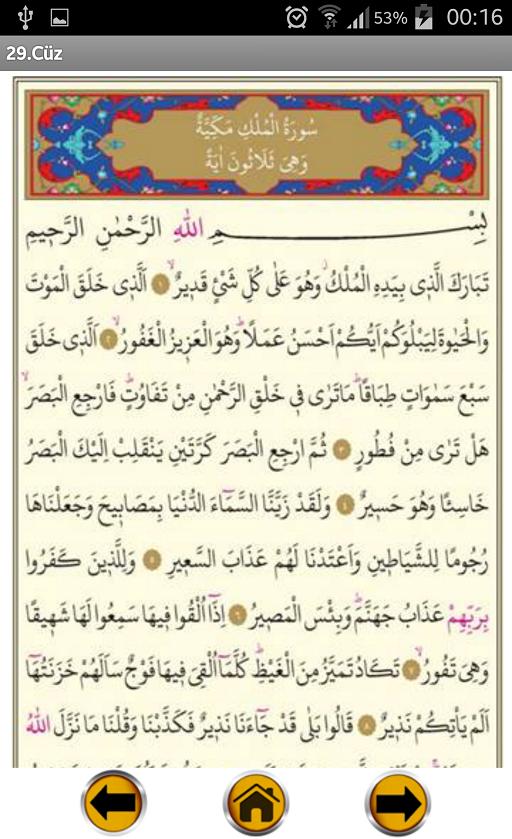 53% 00:16
29.Cüz
سُورَةُ الْمُلْكِ مَكِّيَّةٌ
وَهِىَ ثَلَاثُونَ اٰيَةً
بِسْمِ اللّٰهِ الرَّحْمٰنِ الرَّحٖيمِ
تَبَارَكَ الَّذٖى بِيَدِهِ الْمُلْكُ وَهُوَ عَلٰى كُلِّ شَىْءٍ قَدٖيرٌۙ ﴿١﴾ اَلَّذٖى خَلَقَ الْمَوْتَ
وَالْحَيٰوةَ لِيَبْلُوَكُمْ اَيُّكُمْ اَحْسَنُ عَمَلًاؕ وَهُوَ الْعَزٖيزُ الْغَفُورُۙ ﴿٢﴾ اَلَّذٖى خَلَقَ
سَبْعَ سَمٰوَاتٍ طِبَاقًاؕ مَا تَرٰى فٖى خَلْقِ الرَّحْمٰنِ مِنْ تَفَاوُتٍؕ فَارْجِعِ الْبَصَرَۙ
هَلْ تَرٰى مِنْ فُطُورٍ ﴿٣﴾ ثُمَّ ارْجِعِ الْبَصَرَ كَرَّتَيْنِ يَنْقَلِبْ اِلَيْكَ الْبَصَرُ
خَاسِئًا وَهُوَ حَسٖيرٌ ﴿٤﴾ وَلَقَدْ زَيَّنَّا السَّمَٓاءَ الدُّنْيَا بِمَصَابٖيحَ وَجَعَلْنَاهَا
رُجُومًا لِلشَّيَاطٖينِ وَاَعْتَدْنَا لَهُمْ عَذَابَ السَّعٖيرِ ﴿٥﴾ وَلِلَّذٖينَ كَفَرُوا
بِرَبِّهِمْ عَذَابُ جَهَنَّمَؕ وَبِئْسَ الْمَصٖيرُ ﴿٦﴾ اِذَٓا اُلْقُوا فٖيهَا سَمِعُوا لَهَا شَهٖيقًا
وَهِىَ تَفُورُۙ ﴿٧﴾ تَكَادُ تَمَيَّزُ مِنَ الْغَيْظِؕ كُلَّمَٓا اُلْقِىَ فٖيهَا فَوْجٌ سَاَلَهُمْ خَزَنَتُهَٓا
اَلَمْ يَاْتِكُمْ نَذٖيرٌ ﴿٨﴾ قَالُوا بَلٰى قَدْ جَٓاءَنَا نَذٖيرٌ فَكَذَّبْنَا وَقُلْنَا مَا نَزَّلَ اللّٰهُ